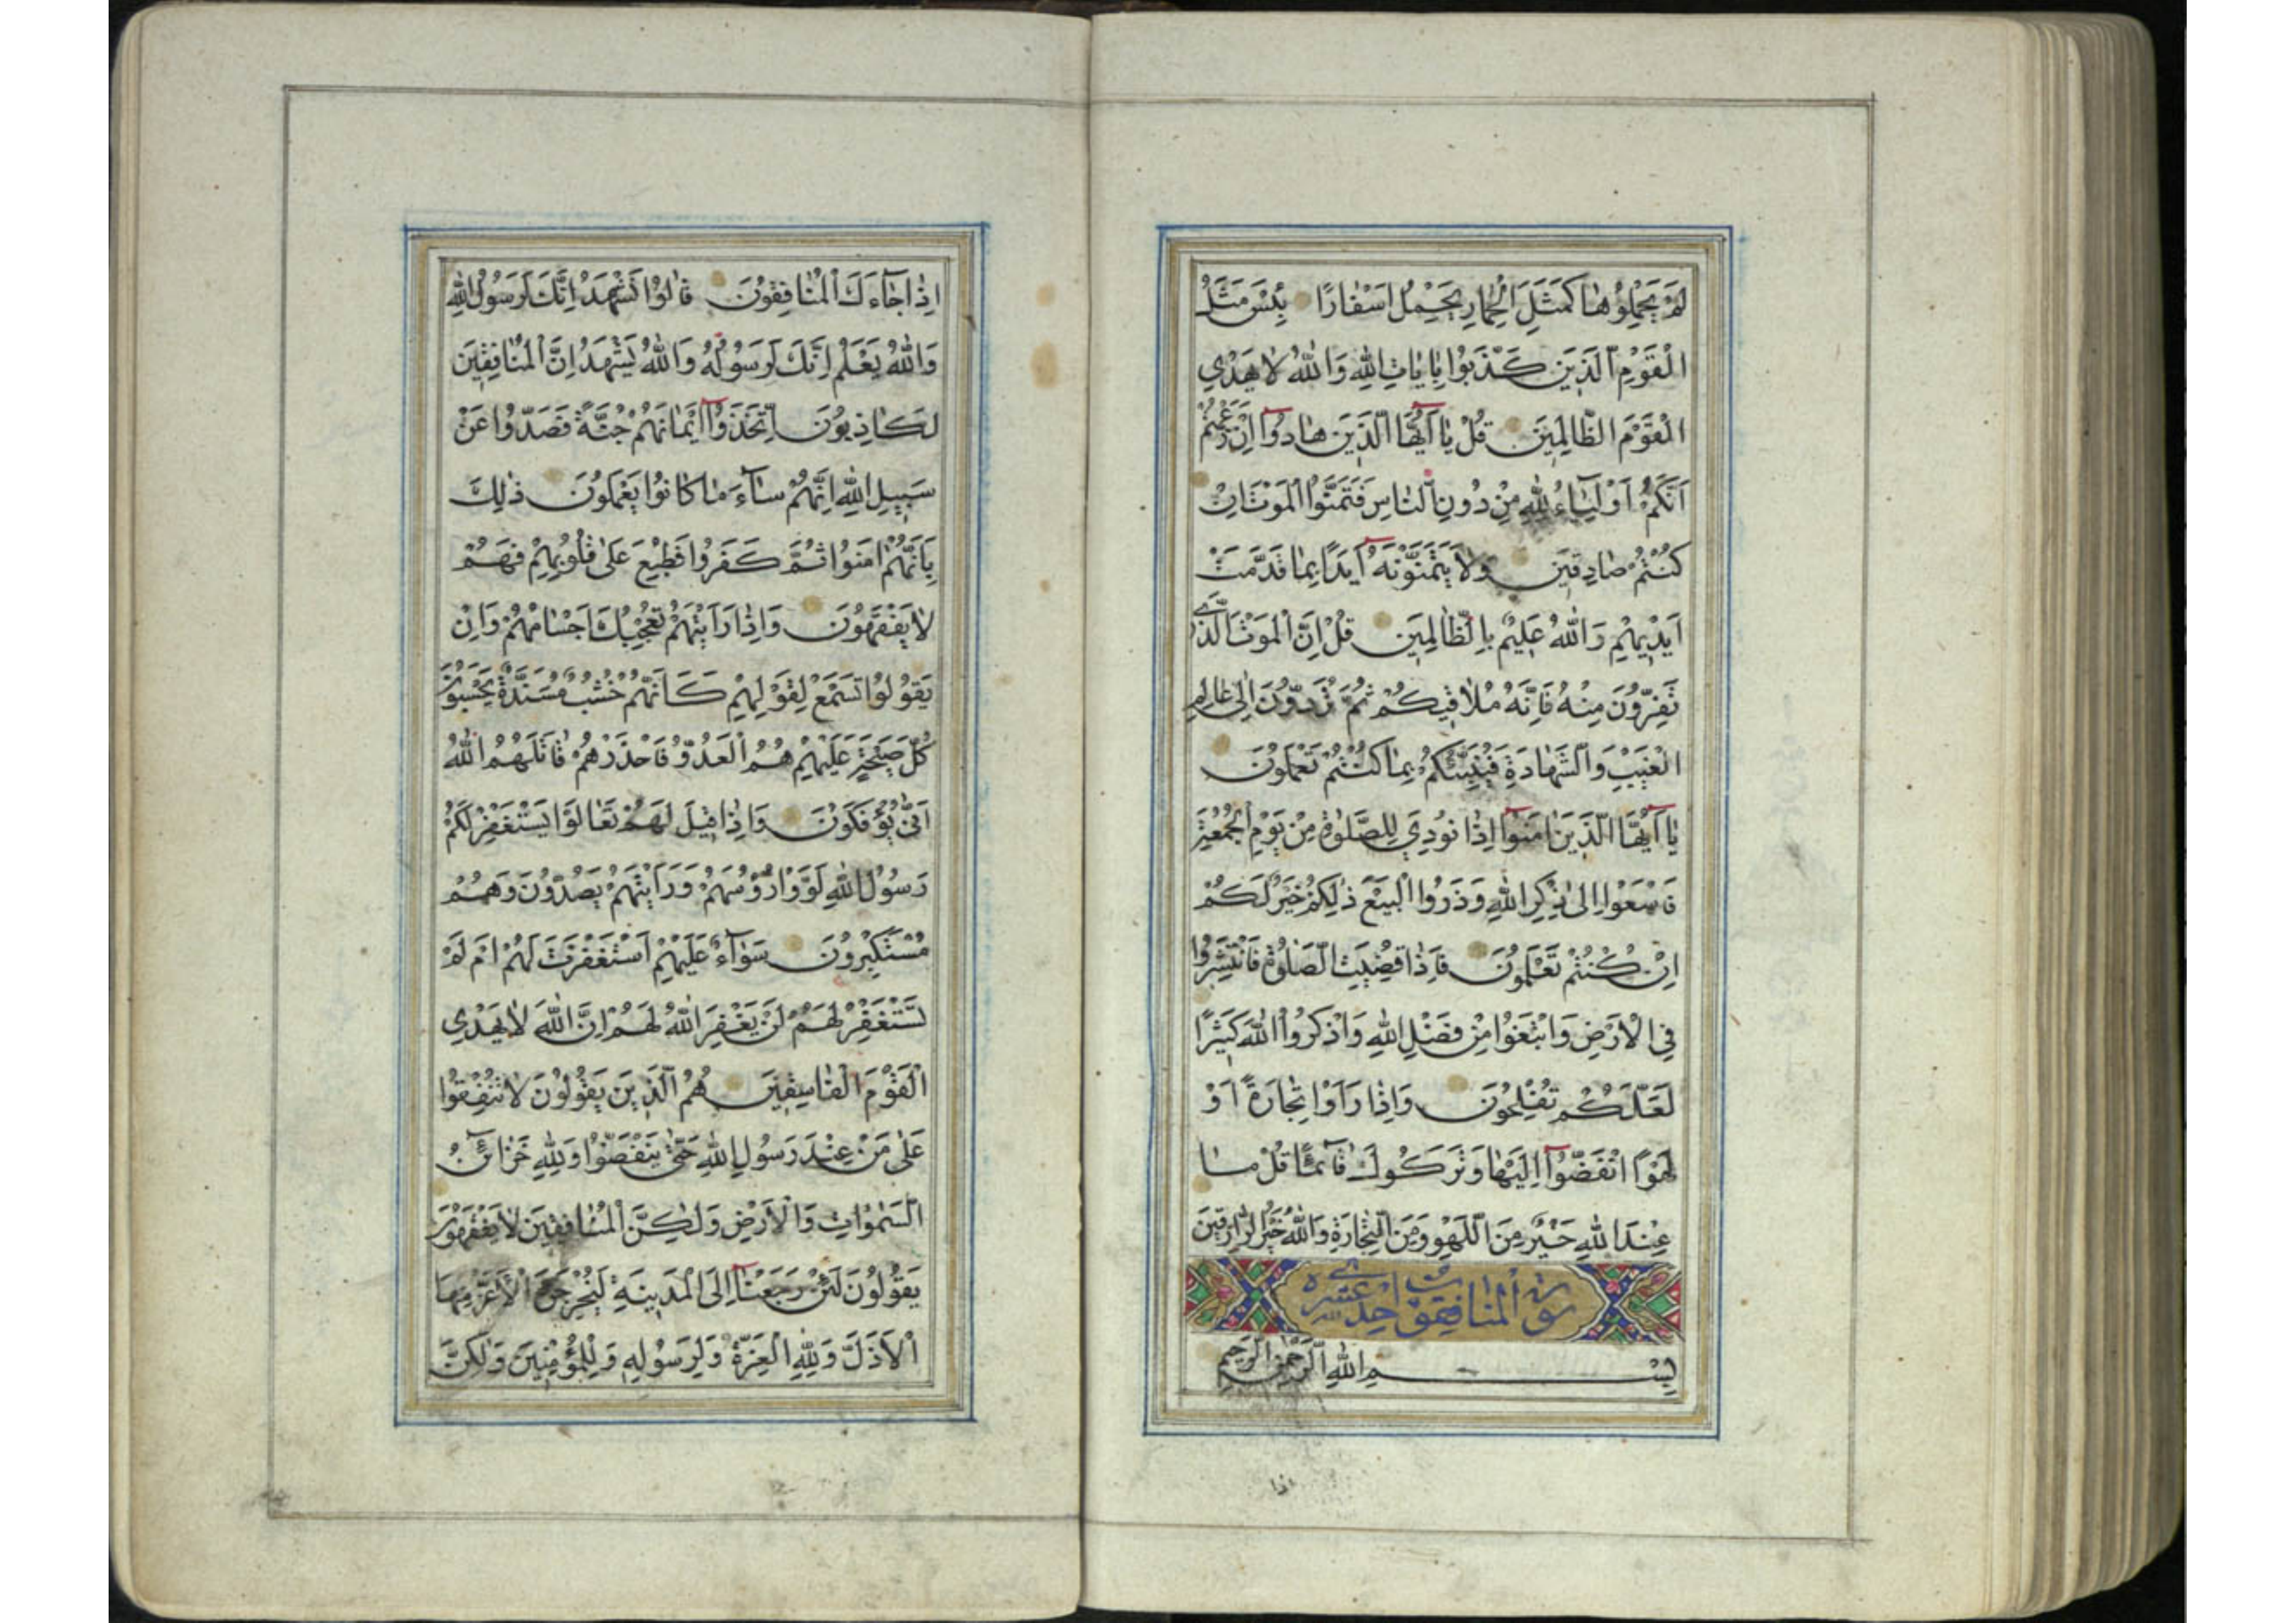 لَمْ يَحْمِلُوهَا كَمَثَلِ الْحِمَارِ يَحْمِلُ اَسْفَارًا بِئْسَ مَثَلُ
الْقَوْمِ الَّذِينَ كَذَّبُوا بِاٰيَاتِ اللّٰهِ وَاللّٰهُ لَا يَهْدِي
الْقَوْمَ الظَّالِمِينَ قُلْ يَا اَيُّهَا الَّذِينَ هَادُوا اِنْ زَعَمْتُمْ
اَنَّكُمْ اَوْلِيَاءُ لِلّٰهِ مِنْ دُونِ النَّاسِ فَتَمَنَّوُا الْمَوْتَ اِنْ
كُنْتُمْ صَادِقِينَ وَلَا يَتَمَنَّوْنَهُ اَبَدًا بِمَا قَدَّمَتْ
اَيْدِيهِمْ وَاللّٰهُ عَلِيمٌ بِالظَّالِمِينَ قُلْ اِنَّ الْمَوْتَ الَّذِي
تَفِرُّونَ مِنْهُ فَاِنَّهُ مُلَاقِيكُمْ ثُمَّ تُرَدُّونَ اِلٰى عَالِمِ
الْغَيْبِ وَالشَّهَادَةِ فَيُنَبِّئُكُمْ بِمَا كُنْتُمْ تَعْمَلُونَ
يَا اَيُّهَا الَّذِينَ اٰمَنُوا اِذَا نُودِيَ لِلصَّلٰوةِ مِنْ يَوْمِ الْجُمُعَةِ
فَاسْعَوْا اِلٰى ذِكْرِ اللّٰهِ وَذَرُوا الْبَيْعَ ذٰلِكُمْ خَيْرٌ لَكُمْ
اِنْ كُنْتُمْ تَعْلَمُونَ فَاِذَا قُضِيَتِ الصَّلٰوةُ فَانْتَشِرُوا
فِي الْاَرْضِ وَابْتَغُوا مِنْ فَضْلِ اللّٰهِ وَاذْكُرُوا اللّٰهَ كَثِيرًا
لَعَلَّكُمْ تُفْلِحُونَ وَاِذَا رَاَوْا تِجَارَةً اَوْ
لَهْوًا انْفَضُّوا اِلَيْهَا وَتَرَكُوكَ قَائِمًا قُلْ مَا
عِنْدَ اللّٰهِ خَيْرٌ مِنَ اللَّهْوِ وَمِنَ التِّجَارَةِ وَاللّٰهُ خَيْرُ الرَّازِقِينَ
سورة المنافقون احدى عشره
بِسْمِ اللّٰهِ الرَّحْمٰنِ الرَّحِيمِ
اذا
اِذَا جَاءَكَ الْمُنَافِقُونَ قَالُوا نَشْهَدُ اِنَّكَ لَرَسُولُ اللّٰهِ
وَاللّٰهُ يَعْلَمُ اِنَّكَ لَرَسُولُهُ وَاللّٰهُ يَشْهَدُ اِنَّ الْمُنَافِقِينَ
لَكَاذِبُونَ اِتَّخَذُوا اَيْمَانَهُمْ جُنَّةً فَصَدُّوا عَنْ
سَبِيلِ اللّٰهِ اِنَّهُمْ سَاءَ مَا كَانُوا يَعْمَلُونَ ذٰلِكَ
بِاَنَّهُمْ اٰمَنُوا ثُمَّ كَفَرُوا فَطُبِعَ عَلٰى قُلُوبِهِمْ فَهُمْ
لَا يَفْقَهُونَ وَاِذَا رَاَيْتَهُمْ تُعْجِبُكَ اَجْسَامُهُمْ وَاِنْ
يَقُولُوا تَسْمَعْ لِقَوْلِهِمْ كَاَنَّهُمْ خُشُبٌ مُسَنَّدَةٌ يَحْسَبُونَ
كُلَّ صَيْحَةٍ عَلَيْهِمْ هُمُ الْعَدُوُّ فَاحْذَرْهُمْ قَاتَلَهُمُ اللّٰهُ
اَنّٰى يُؤْفَكُونَ وَاِذَا قِيلَ لَهُمْ تَعَالَوْا يَسْتَغْفِرْ لَكُمْ
رَسُولُ اللّٰهِ لَوَّوْا رُؤُسَهُمْ وَرَاَيْتَهُمْ يَصُدُّونَ وَهُمْ
مُسْتَكْبِرُونَ سَوَاءٌ عَلَيْهِمْ اَسْتَغْفَرْتَ لَهُمْ اَمْ لَمْ
تَسْتَغْفِرْ لَهُمْ لَنْ يَغْفِرَ اللّٰهُ لَهُمْ اِنَّ اللّٰهَ لَا يَهْدِي
الْقَوْمَ الْفَاسِقِينَ هُمُ الَّذِينَ يَقُولُونَ لَا تُنْفِقُوا
عَلٰى مَنْ عِنْدَ رَسُولِ اللّٰهِ حَتّٰى يَنْفَضُّوا وَلِلّٰهِ خَزَائِنُ
السَّمٰوَاتِ وَالْاَرْضِ وَلٰكِنَّ الْمُنَافِقِينَ لَا يَفْقَهُونَ
يَقُولُونَ لَئِنْ رَجَعْنَا اِلَى الْمَدِينَةِ لَيُخْرِجَنَّ الْاَعَزُّ مِنْهَا
الْاَذَلَّ وَلِلّٰهِ الْعِزَّةُ وَلِرَسُولِهِ وَلِلْمُؤْمِنِينَ وَلٰكِنَّ